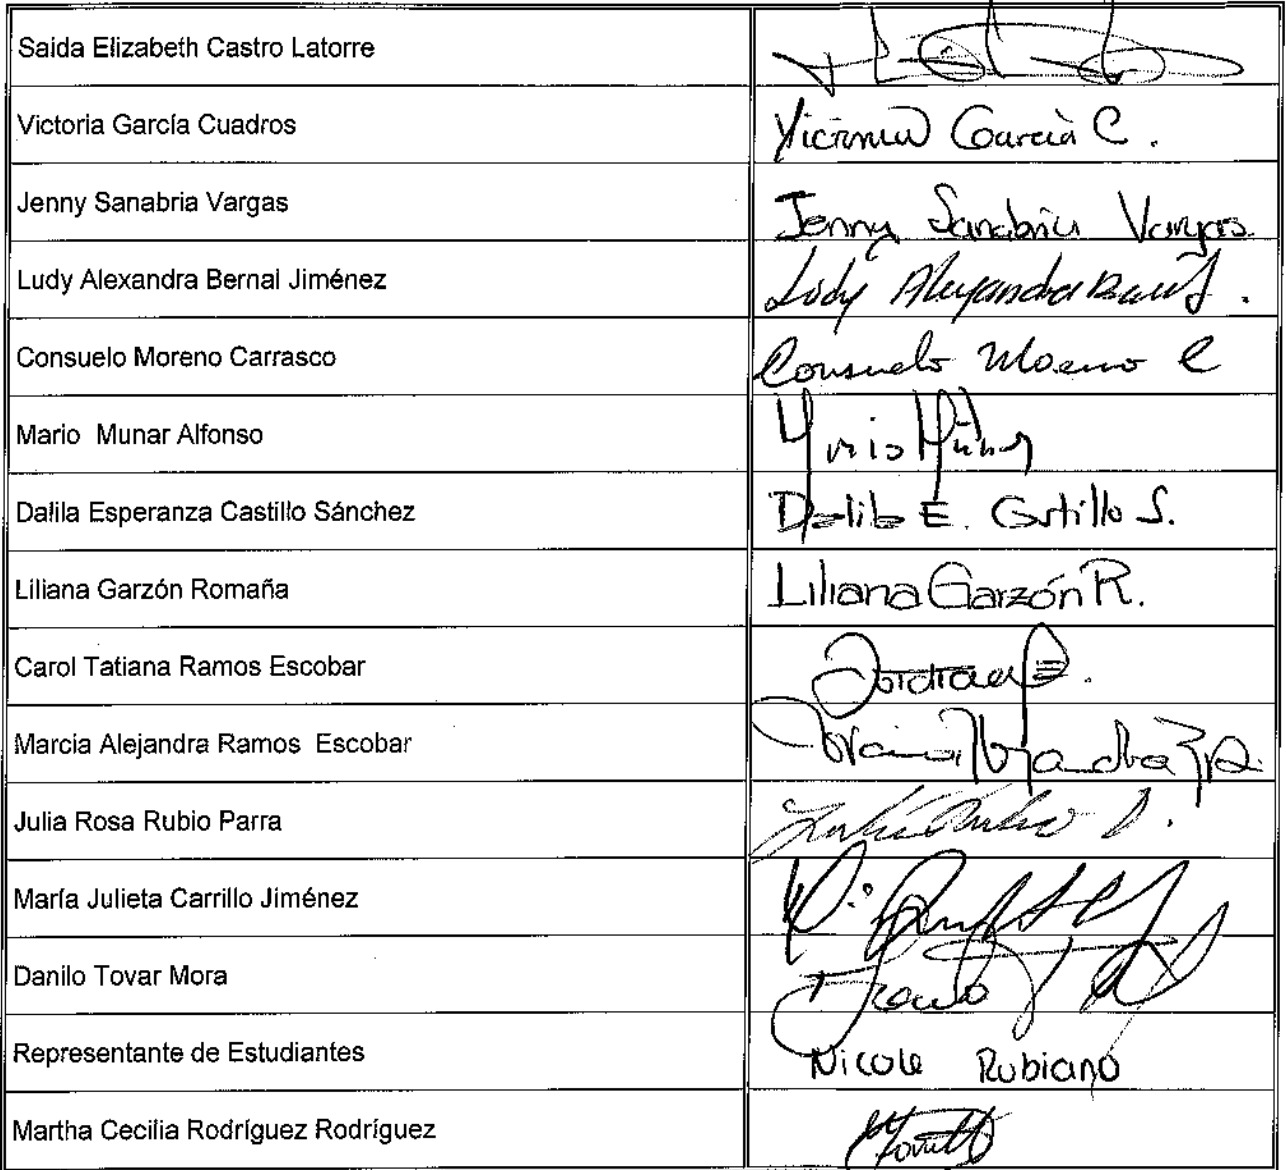 Saida Elizabeth Castro Latorre
Victoria García Cuadros Victoria García C.
Jenny Sanabria Vargas Jenny Sanabria Vargas
Ludy Alexandra Bernal Jiménez Ludy Alexandra Bernal J.
Consuelo Moreno Carrasco Consuelo Moreno C
Mario Munar Alfonso
Dalila Esperanza Castillo Sánchez Dalila E. Castillo S.
Liliana Garzón Romaña Liliana Garzón R.
Carol Tatiana Ramos Escobar
Marcia Alejandra Ramos Escobar
Julia Rosa Rubio Parra
María Julieta Carrillo Jiménez
Danilo Tovar Mora
Representante de Estudiantes Nicole Rubiano
Martha Cecilia Rodríguez Rodríguez